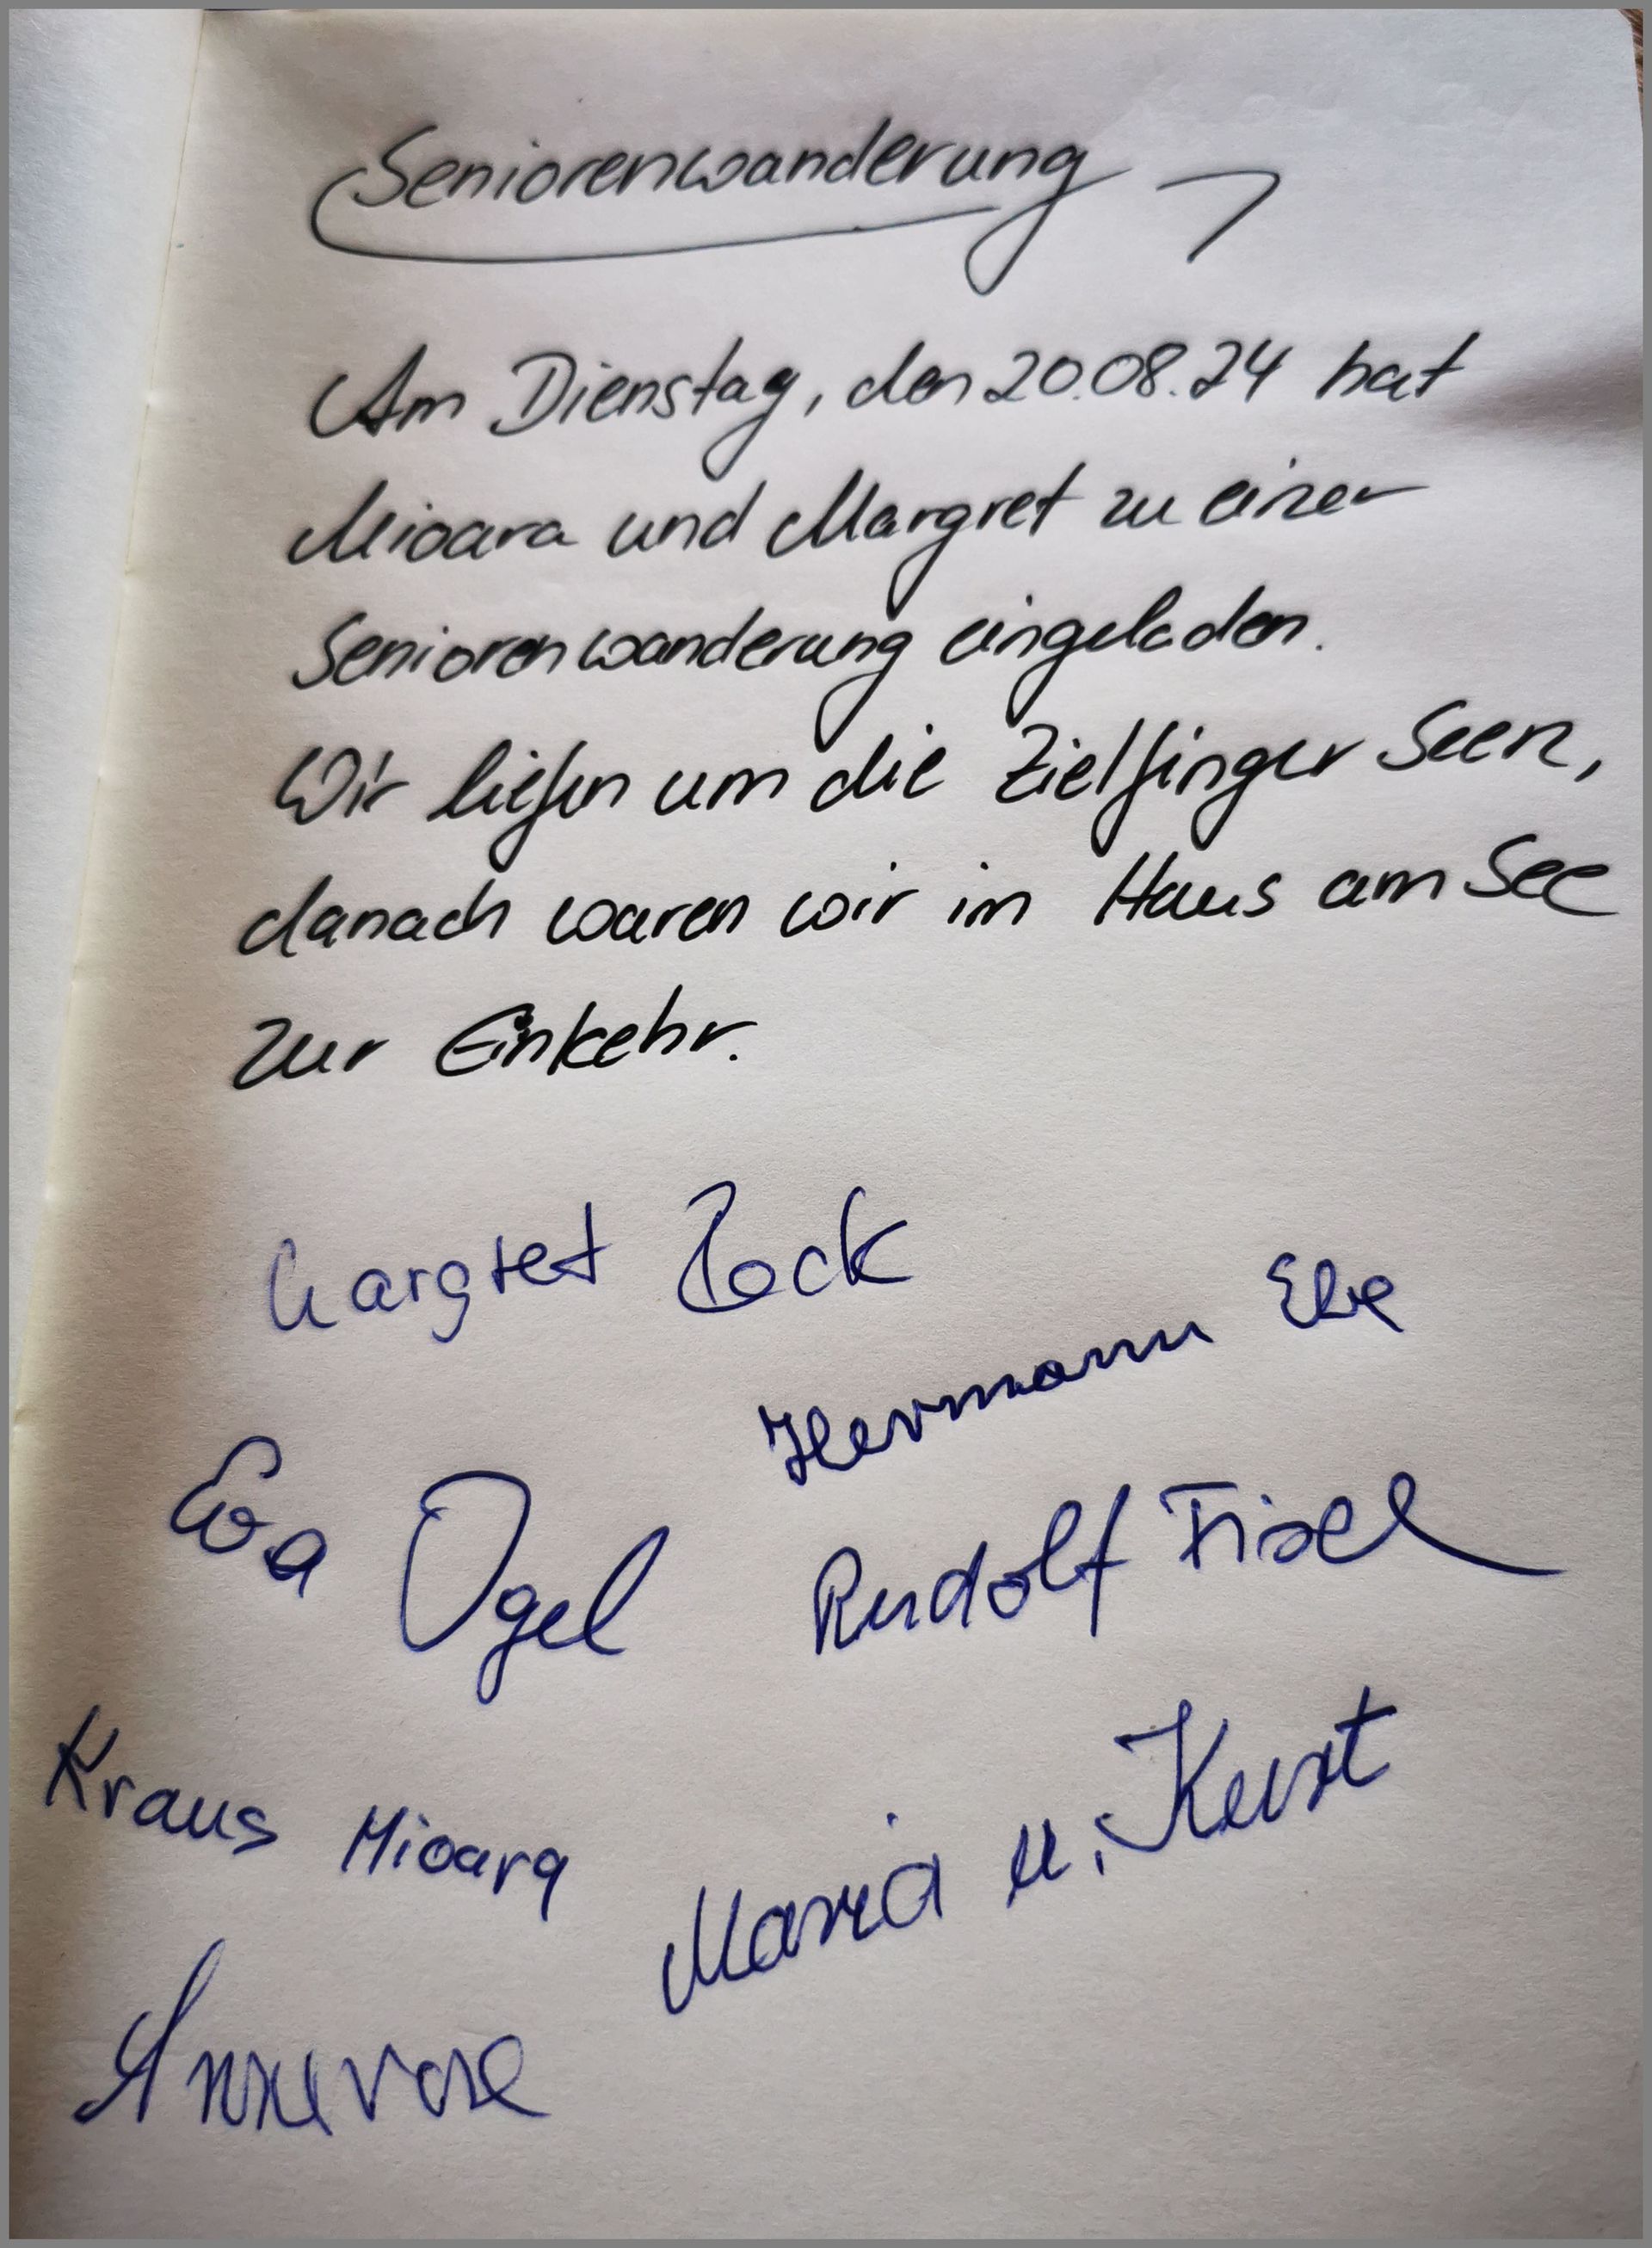 Seniorenwanderung
Am Dienstag, den 20.08.24 hat
Mioara und Margret zu einer
Seniorenwanderung eingeladen.
Wir liefen um die Zielfinger Seen,
danach waren wir im Haus am See
zur Einkehr.
Margret
Hermann
Eva Ogel
Rudolf
Kraus Mioara
Maria u. Kurt
Annerose